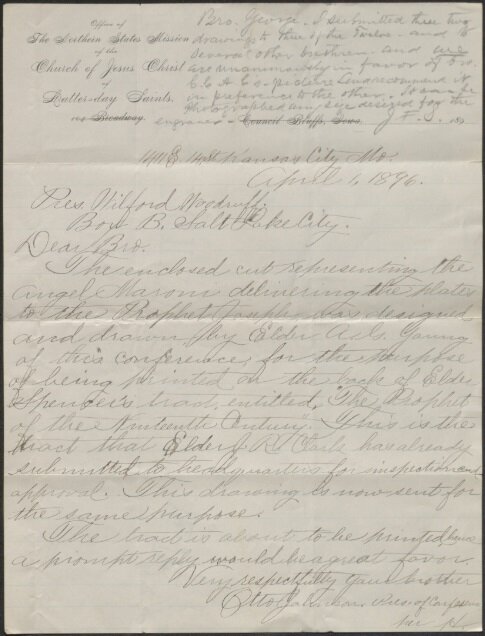 Office of
The Northern States Mission
of the
Church of Jesus Christ
of
Latter-day Saints.
Broadway.
Council Bluffs, Iowa. 189
Bro. George. I submitted these two
drawings to three of the Twelve and to
several other brethren and are
are unanimously in favor of
and recommend it
in preference to the other. It can be
photographed any size desired for the
engraver. J. F. S.
1411 E 14 St Kansas City Mo.
April 1, 1896.
Pres. Wilford Woodruff.
Box B. Salt Lake City.
Dear Bro.
The enclosed cut representing the
angel Maroni delivering the plates
to the Prophet Joseph was designed
and drawn by Elder Young
of this conference, for the purpose
of being printed on the back of Elder
Spencer's tract, entitled, "The Prophet
of the Nineteenth Century." This is the
tract that Elder Clark has already
submitted to headquarters for inspection and
approval. This drawing is now sent for
the same purpose.
The tract is about to be printed, hence
a prompt reply would be a great favor.
Very respectfully your brother
Otto Johnson. Pres. of Conference